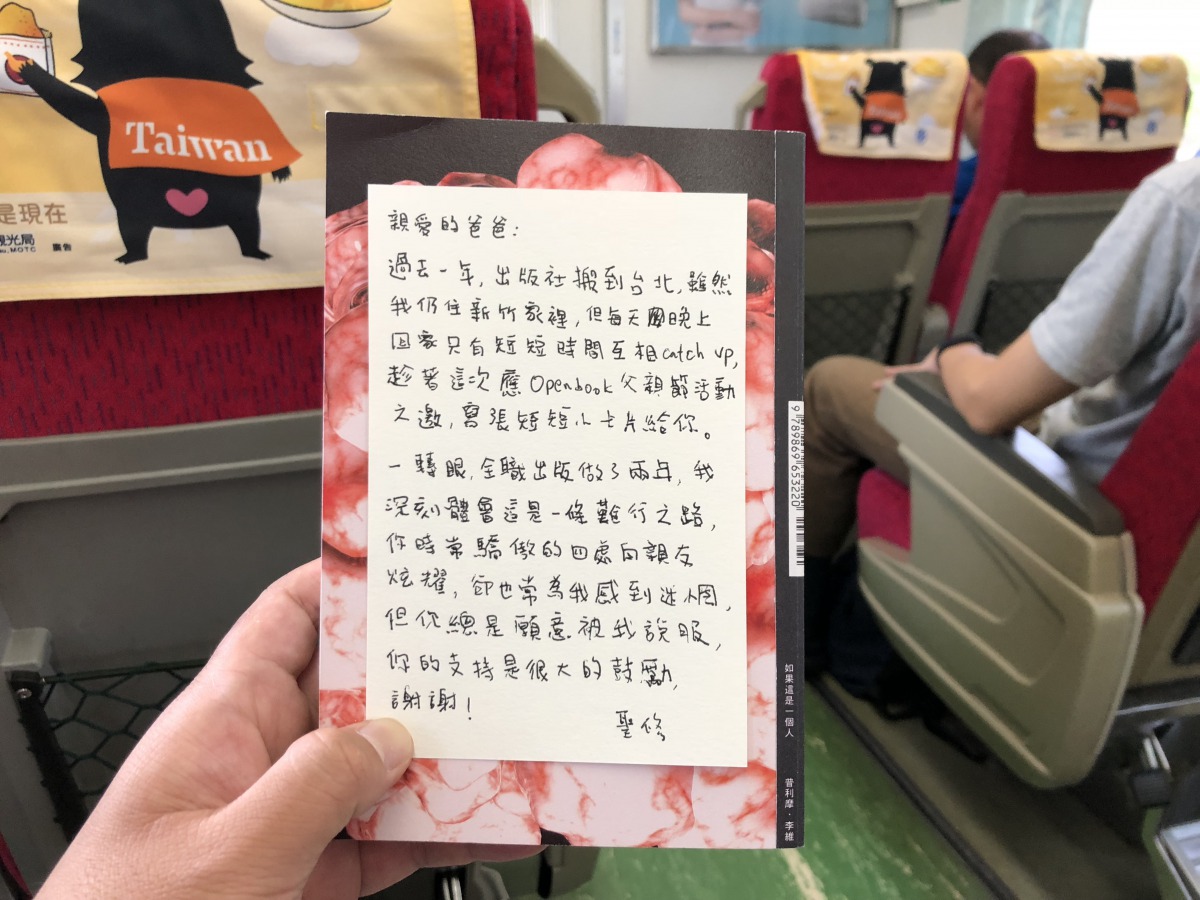 Taiwan
是現在
觀光局
廣告
親愛的爸爸：
過去一年，出版社搬到台北，雖然
我仍住新竹家裡，但每天晚上
回家只有短短時間互相catch up,
趁著這次應Openbook父親節活動
之邀，寫張短短小卡片給你。
一轉眼，全職出版做了兩年，我
深刻體會這是一條難行之路，
你時常驕傲的四處向親友
炫耀，卻也常為我感到迷惘，
但你總是願意被我說服，
你的支持是很大的鼓勵，
謝謝！
聖修
9 789869 653220
如果這是一個人
普利摩・李維